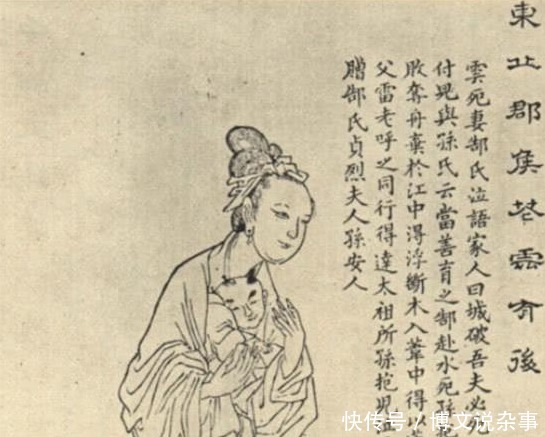 東丘郡侯花雲有後
雲死妻郜氏泣語家人曰城破吾夫必
付兒與孫氏云當善育之郜赴水死孫
敗奪舟棄於江中得浮斷木入葦中得以
父雷老呼之同行得達太祖所孫抱兒
贈郜氏貞烈夫人孫安人
快传号/博文说杂事